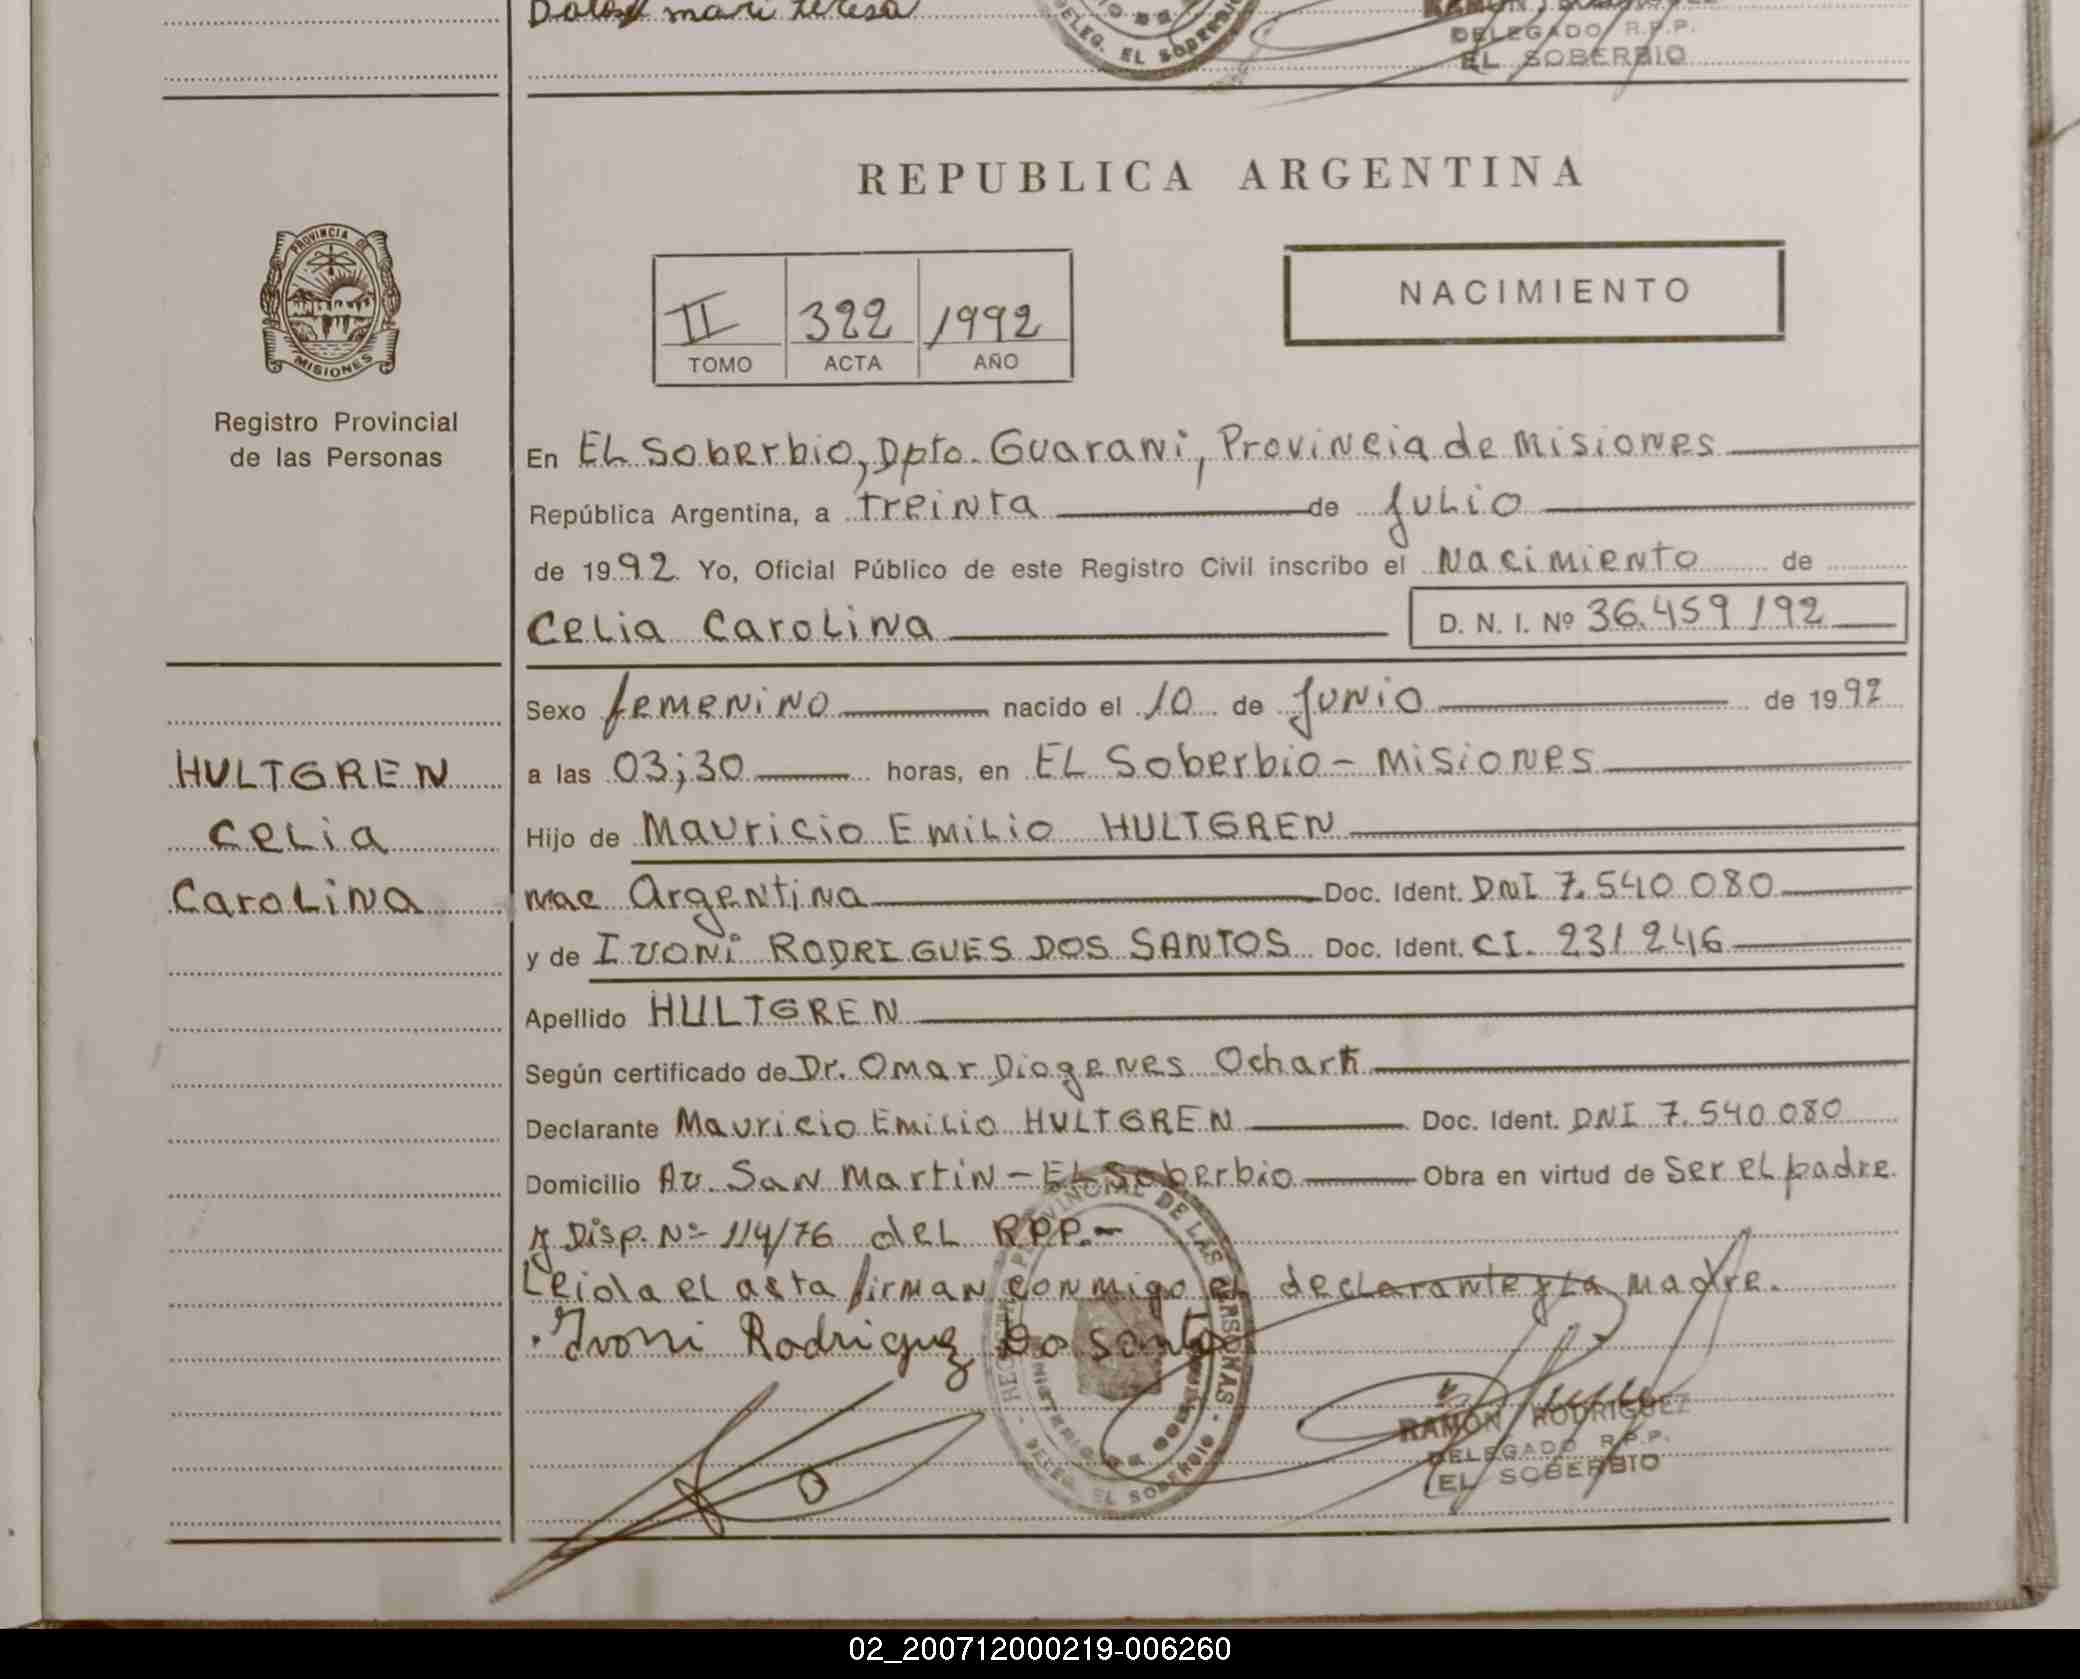 Dolos mari teresa
DELEG. EL SOBERBIO
DELEGADO R.P.P.
EL SOBERBIO
REPUBLICA ARGENTINA
PROVINCIA DE MISIONES
II 322 1992
TOMO ACTA AÑO
NACIMIENTO
Registro Provincial
de las Personas
En EL Soberbio, Dpto. Guarani, Provincia de Misiones
República Argentina, a treinta de Julio
de 1992 Yo, Oficial Público de este Registro Civil inscribo el Nacimiento de
Celia Carolina D. N. I. Nº 36.459192
Sexo femenino nacido el 10 de Junio de 1992
HULTGREN
Celia
Carolina
a las 03;30 horas, en EL Soberbio - Misiones
Hijo de Mauricio Emilio HULTGREN
nac Argentina Doc. Ident. DNI 7.540.080
y de Ivoni RODRIGUES DOS SANTOS Doc. Ident. CI. 231246
Apellido HULTGREN
Según certificado de Dr. Omar Diogenes Ochart
Declarante Mauricio Emilio HULTGREN Doc. Ident. DNI 7.540.080
Domicilio Av. San Martin - EL Soberbio Obra en virtud de Ser el padre
y Disp. Nº 114/76 del RPP.-
Leida el acta firman conmigo el declarante y la madre.
Ivoni Rodriguez Do santo
REGISTRO PROVINCIAL DE LAS PERSONAS
MINISTERIO DE GOBIERNO
DELEG. EL SOBERBIO
RAMON RODRIGUEZ
DELEGADO R.P.P.
EL SOBERBIO
02_200712000219-006260